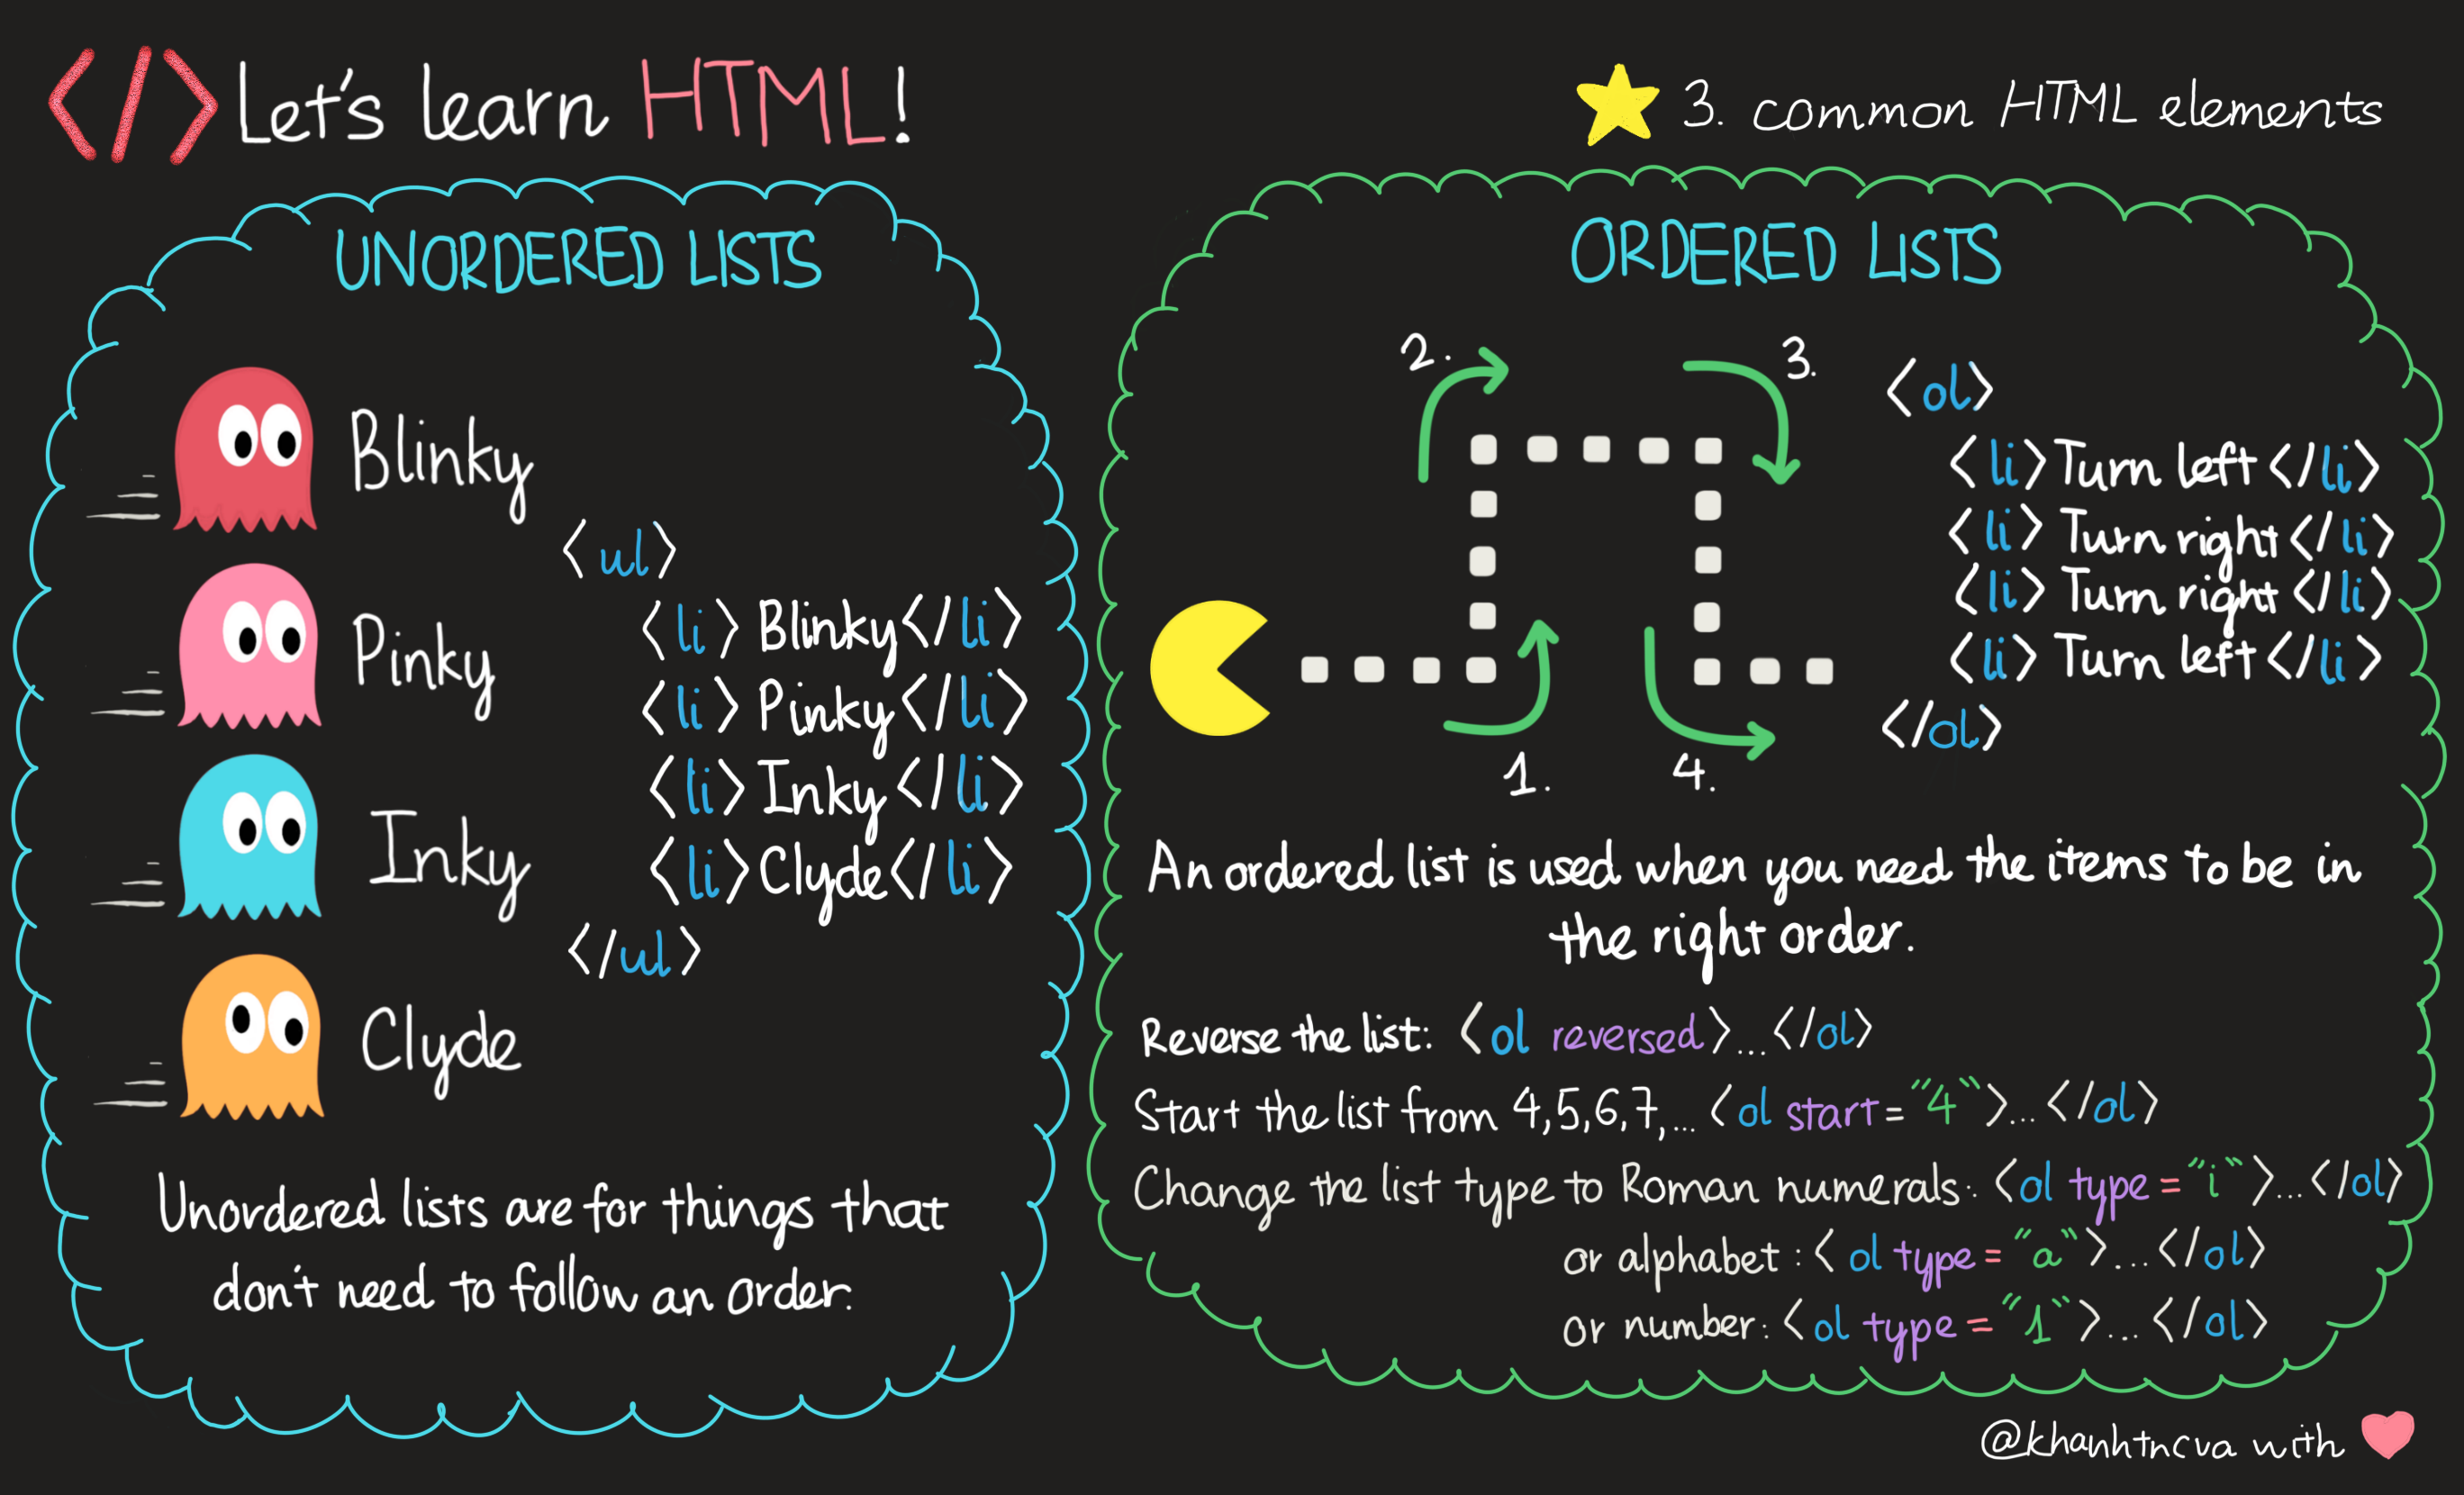 </> Let's learn HTML!
3. common HTML elements
UNORDERED LISTS
Blinky
Pinky
Inky
Clyde
<ul>
<li> Blinky </li>
<li> Pinky </li>
<li> Inky </li>
<li> Clyde </li>
</ul>
Unordered lists are for things that
don't need to follow an order.
ORDERED LISTS
2.
3.
1.
4.
<ol>
<li> Turn left </li>
<li> Turn right </li>
<li> Turn right </li>
<li> Turn left </li>
</ol>
An ordered list is used when you need the items to be in
the right order.
Reverse the list: <ol reversed>...</ol>
Start the list from 4,5,6,7,... <ol start="4">...</ol>
Change the list type to Roman numerals: <ol type="i">...</ol>
or alphabet: <ol type="a">...</ol>
or number: <ol type="1">...</ol>
@khanhtncva with